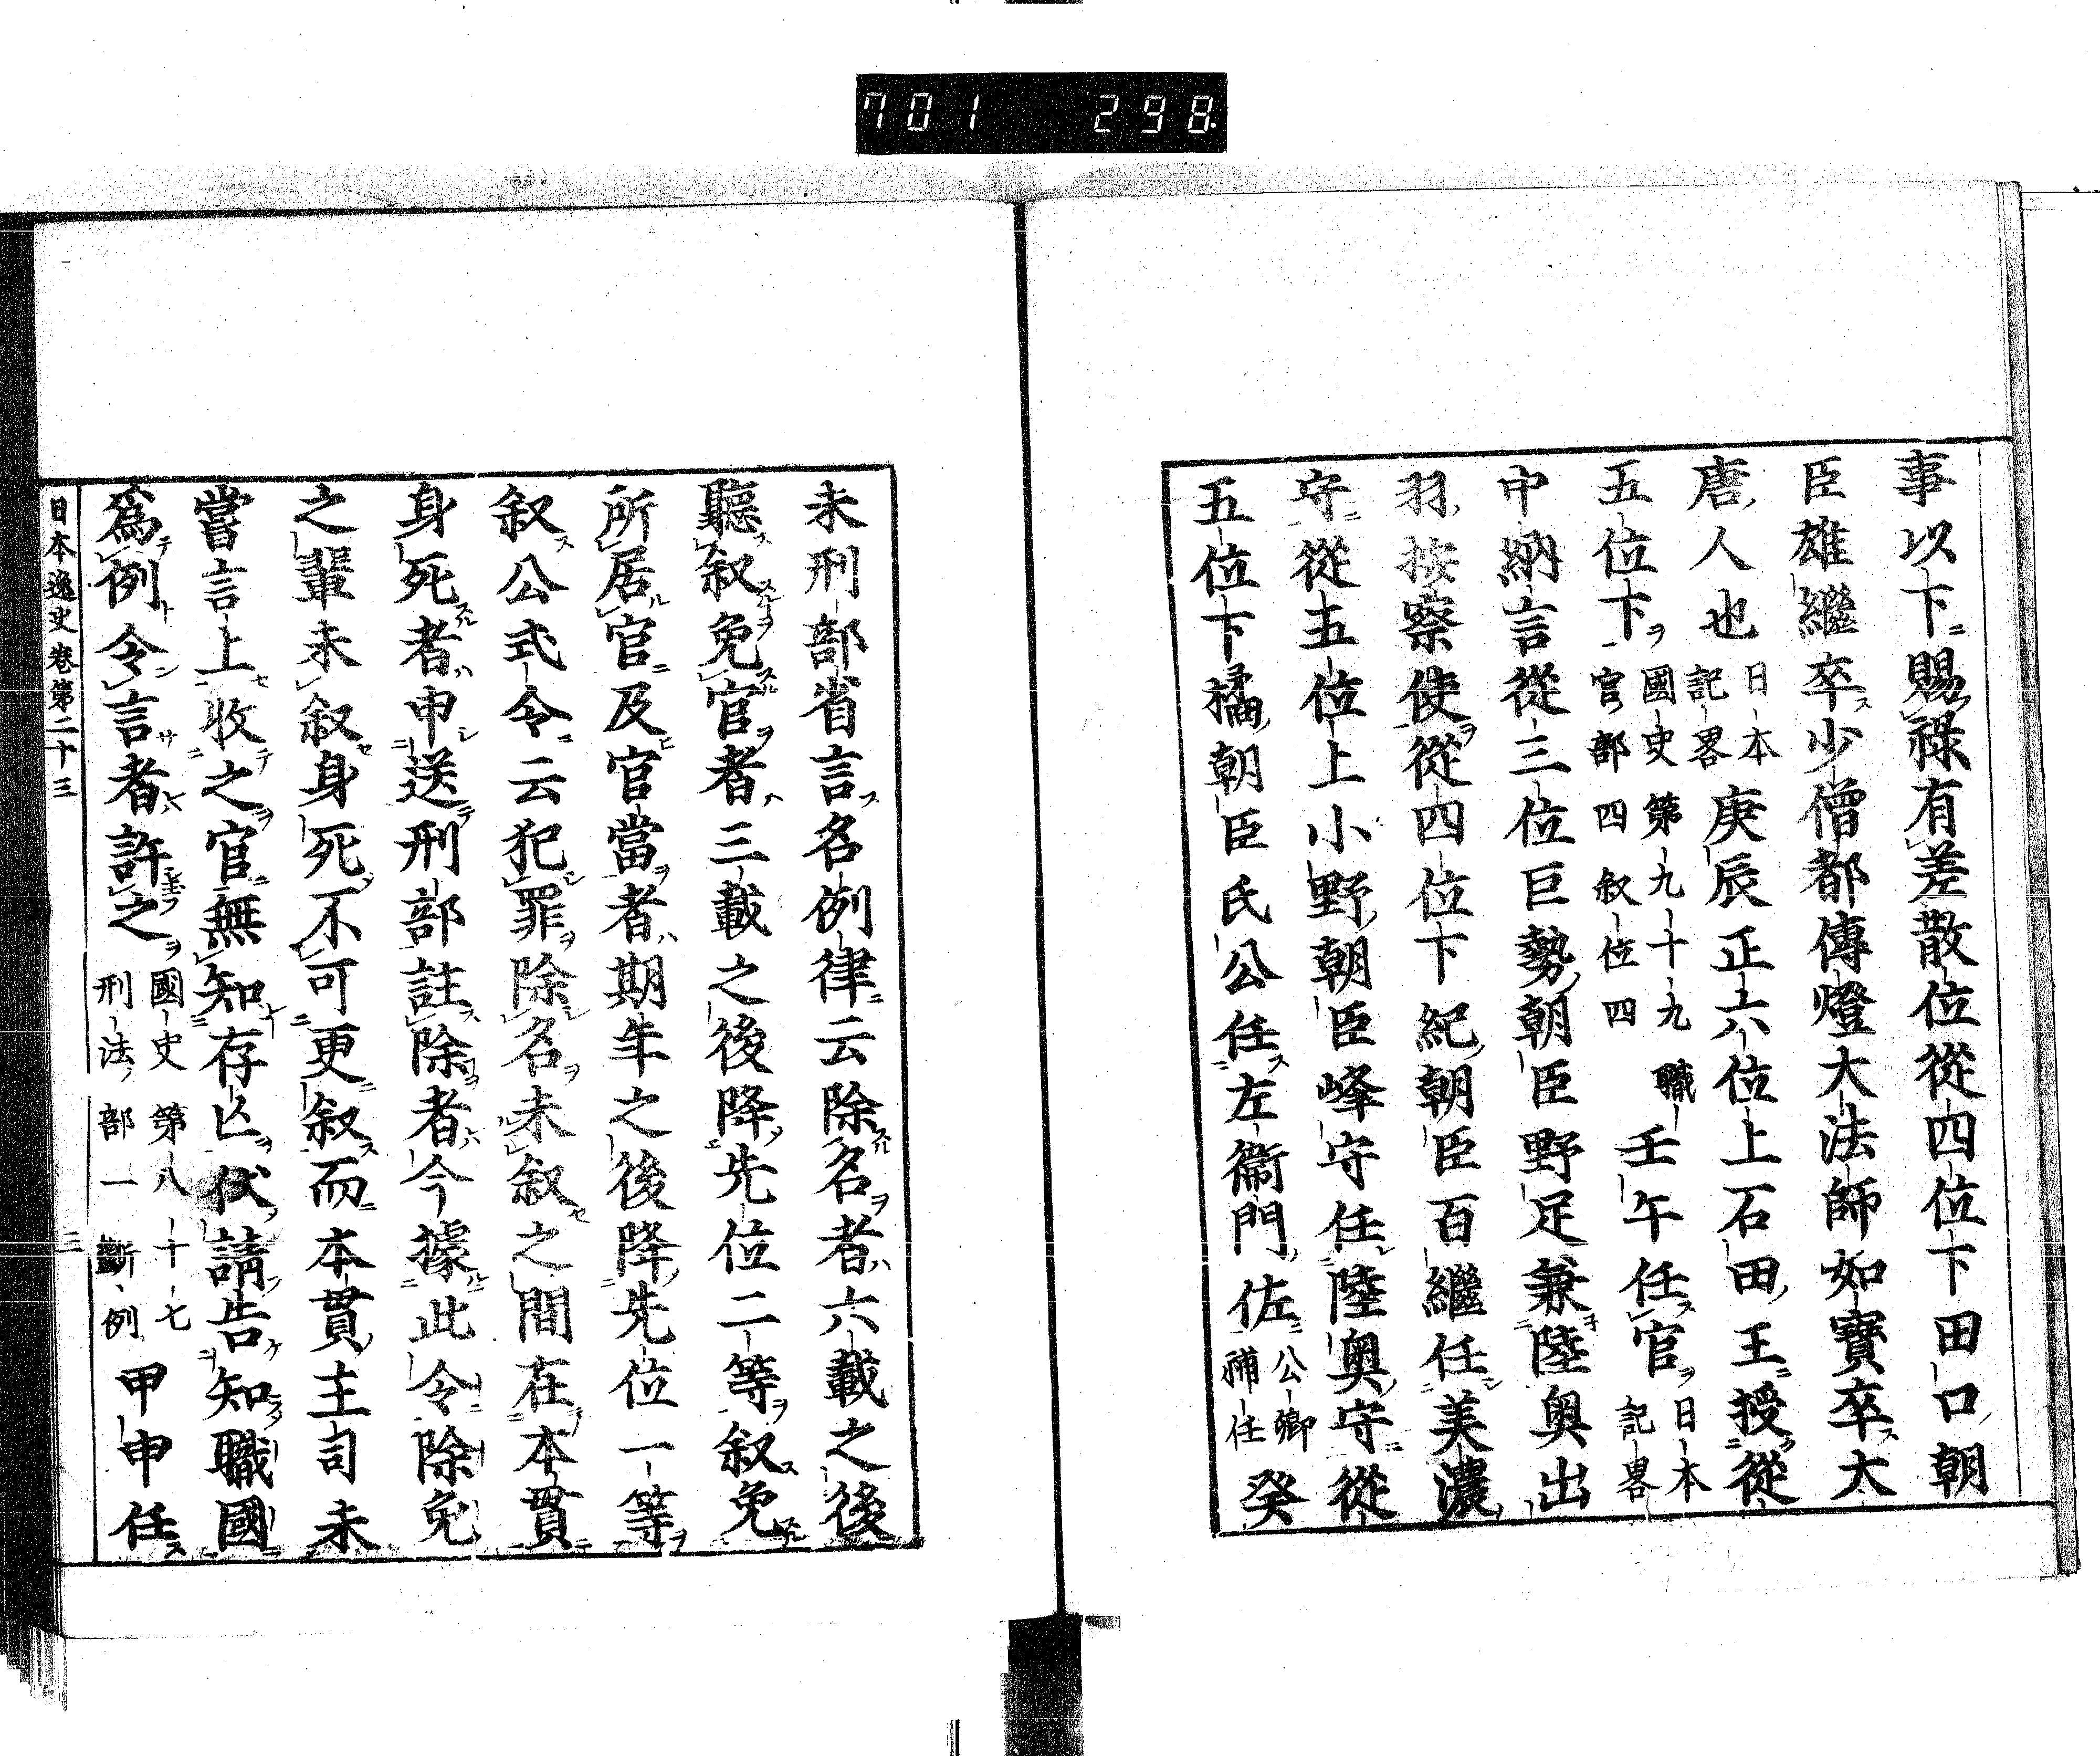 701 298
事以下賜祿有差散位從四位下田口朝
臣雄繼卒少僧都傳燈大法師如寶卒大
唐人也日本記畧庚辰正六位上石田王授從
五位下國史第九十九職官部四叙位四壬午任官日本記畧
中納言從三位巨勢朝臣野足兼陸奥出
羽按察使從四位下紀朝臣百繼任美濃
守從五位上小野朝臣峰守任陸奥守從
五位下橘朝臣氏公任左衞門佐公卿補任癸
未刑部省言名例律云除名者六載之後
聽叙免官者三載之後降先位二等叙免
所居官及官當者期年之後降先位一等
叙公式令云犯罪除名未叙之間在本貫
身死者申送刑部註除者今據此令除免
之輩未叙身死不可更叙而本貫主司未
當言上收之官無知存亾伏請告知職國
爲例令言者許之國史第八十七刑法部一斷例甲申任
日本逸史卷第二十三 三